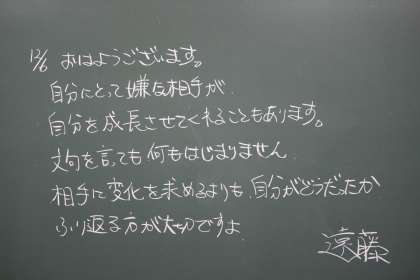 12/6 おはようございます。
自分にとって嫌な相手が
自分を成長させてくれることもあります。
文句を言っても何もはじまりません
相手に変化を求めるよりも、自分がどうだったか
ふり返る方が大切ですよ
遠藤